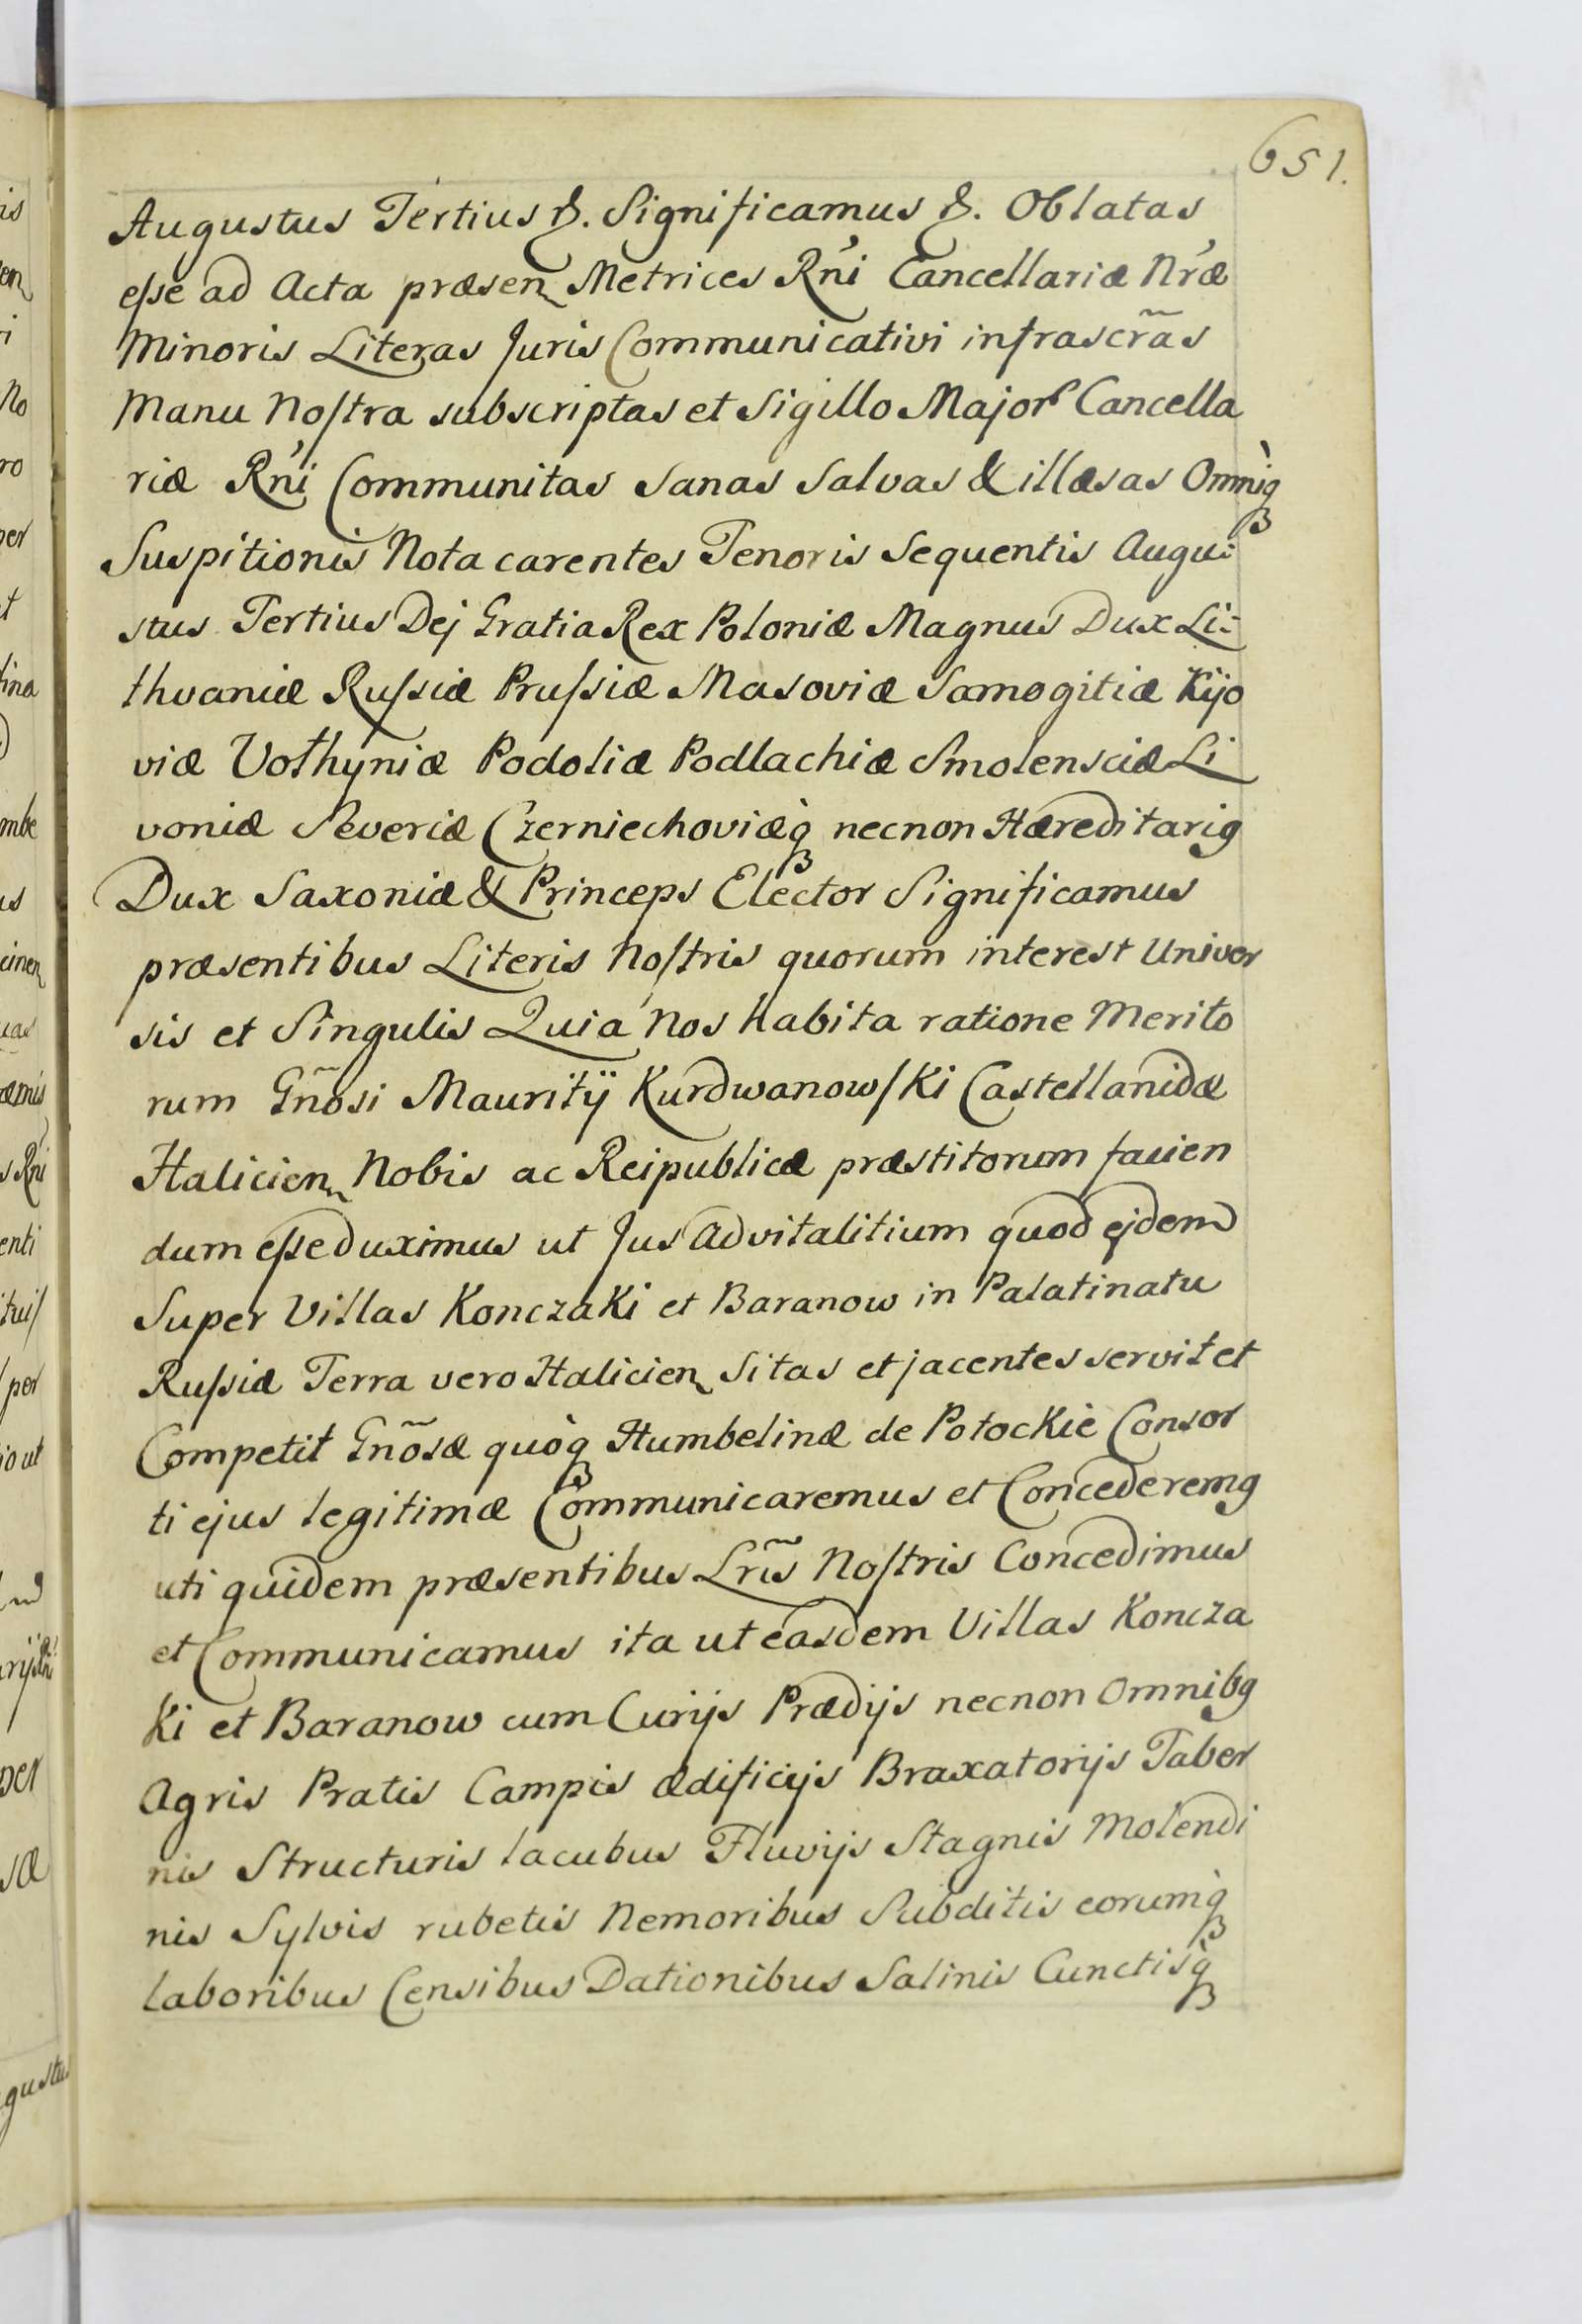 651.
Augustus Tertius &. Significamus &. Oblatas
esse ad Acta præsen Metrices Rn̄i Cancellariæ Nr̄æ
Minoris Literas Juris Communicativi infrascr̃as
Manu Nostra subscriptas et Sigillo Major Cancella
riæ Rn̄i Communitas Sanas Salvas & illæsas Omniq
Suspitionis Nota carentes Tenoris Sequentis Augu:
stus Tertius Dej Gratia Rex Poloniæ Magnus Dux Li:
thvaniæ Russiæ Prussiæ Masoviæ Samogitiæ Kijo
viæ Volhyniæ Podoliæ Podlachiæ Smolensciæ Li
voniæ Severiæ Czerniechoviæq necnon Hæreditari9
Dux Saxoniæ & Princeps Elector Significamus
præsentibus Literis Nostris quorum interest Univer
sis et Singulis Quia Nos habita ratione Merito
rum Gñosi Mauritÿ Kurdwanowski Castellanidæ
Halicien Nobis ac Reipublicæ præstitorum facien
dum esse duximus ut Jus Advitalitium quod ejdem
Super Villas Konczaki et Baranow in Palatinatu
Russiæ Terra vero Halicien Sitas et jacentes servit et
Competit Gñosæ quoq Humbelinæ de Potockie Consor
ti ejus legitimæ Communicaremus et Concederem9
uti quidem præsentibus Lr̃is Nostris Concedimus
et Communicamus ita ut easdem Villas Koncza
ki et Baranow cum Curijs Prædijs necnon Omnib9
Agris Pratis Campis ædificijs Braxatorijs Taber
nis Structuris lacubus Fluvijs Stagnis Molendi
nis Sylvis rubetis Nemoribus Subditis eorumq
laboribus Censibus Dationibus Salinis Cunctisq